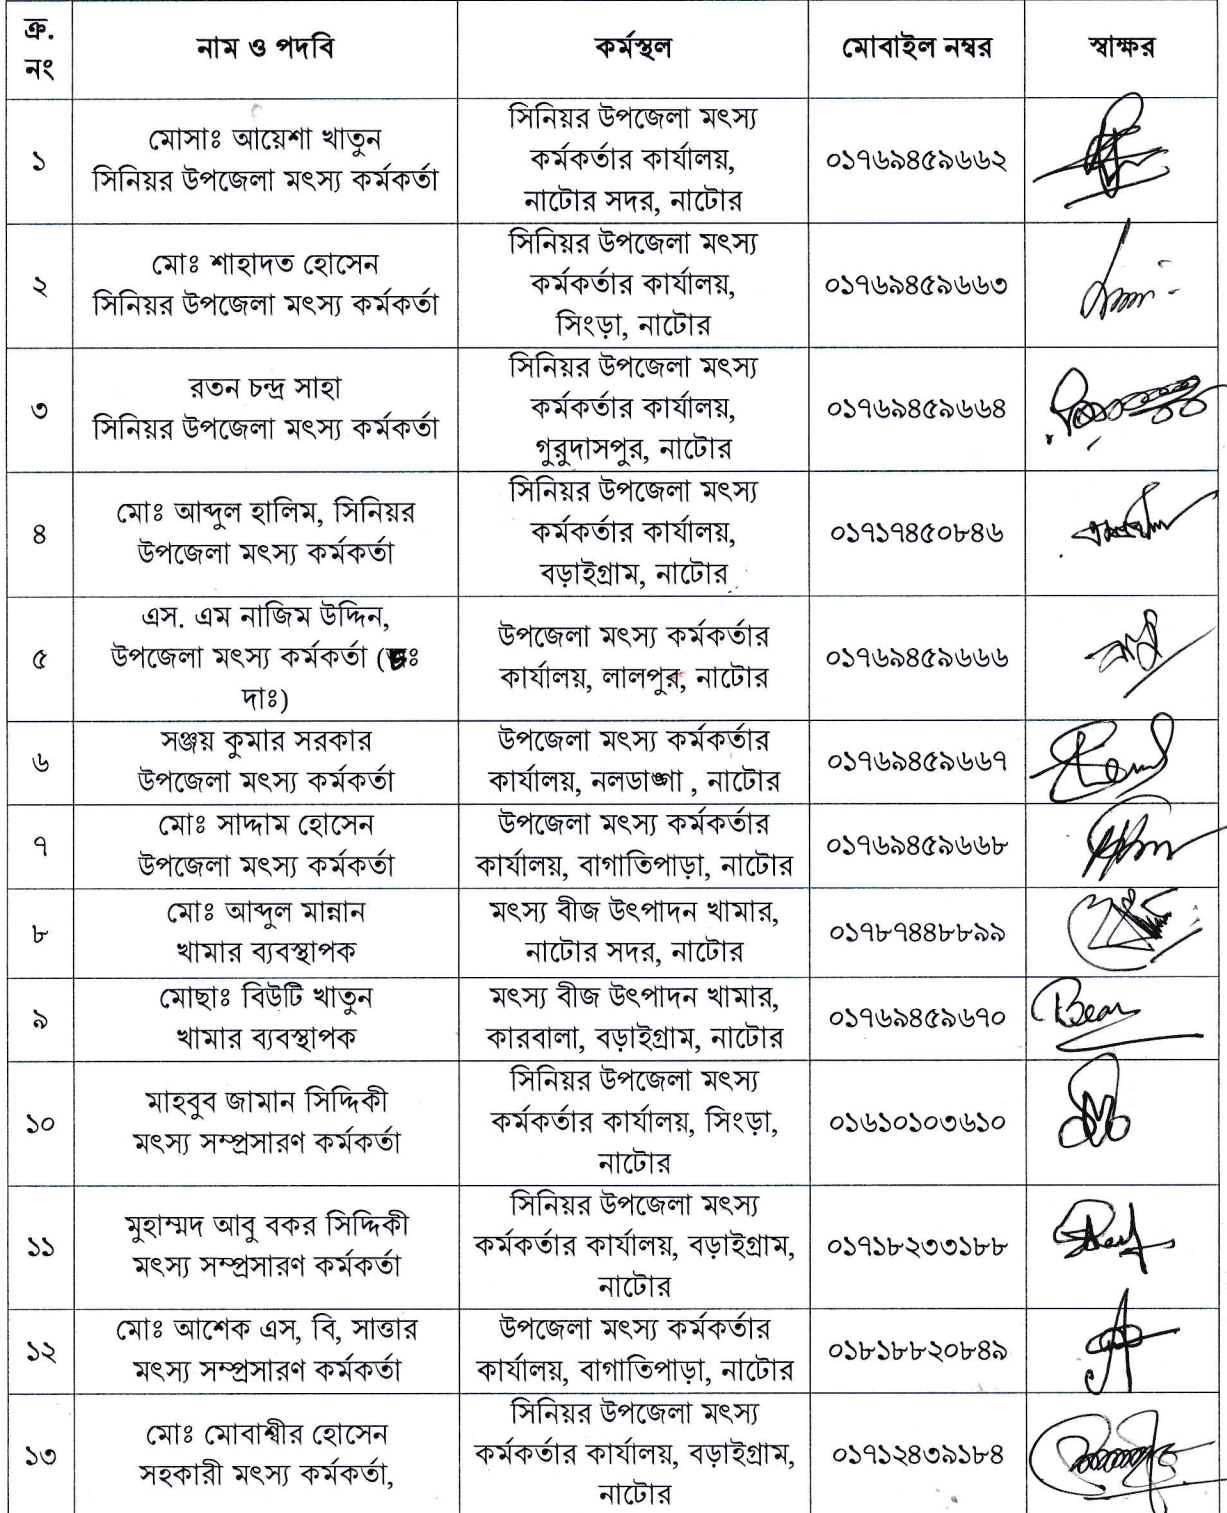 ক্র.
নং
নাম ও পদবি
কর্মস্থল
মোবাইল নম্বর
স্বাক্ষর
১
মোসাঃ আয়েশা খাতুন
সিনিয়র উপজেলা মৎস্য কর্মকর্তা
সিনিয়র উপজেলা মৎস্য
কর্মকর্তার কার্যালয়,
নাটোর সদর, নাটোর
০১৭৬৯৪৫৯৬৬২
২
মোঃ শাহাদত হোসেন
সিনিয়র উপজেলা মৎস্য কর্মকর্তা
সিনিয়র উপজেলা মৎস্য
কর্মকর্তার কার্যালয়,
সিংড়া, নাটোর
০১৭৬৯৪৫৯৬৬৩
৩
রতন চন্দ্র সাহা
সিনিয়র উপজেলা মৎস্য কর্মকর্তা
সিনিয়র উপজেলা মৎস্য
কর্মকর্তার কার্যালয়,
গুরুদাসপুর, নাটোর
০১৭৬৯৪৫৯৬৬৪
৪
মোঃ আব্দুল হালিম, সিনিয়র
উপজেলা মৎস্য কর্মকর্তা
সিনিয়র উপজেলা মৎস্য
কর্মকর্তার কার্যালয়,
বড়াইগ্রাম, নাটোর
০১৭১৭৪৫০৮৪৬
৫
এস. এম নাজিম উদ্দিন,
উপজেলা মৎস্য কর্মকর্তা
দাঃ)
উপজেলা মৎস্য কর্মকর্তার
কার্যালয়, লালপুর, নাটোর
০১৭৬৯৪৫৯৬৬৬
৬
সঞ্জয় কুমার সরকার
উপজেলা মৎস্য কর্মকর্তা
উপজেলা মৎস্য কর্মকর্তার
কার্যালয়, নলডাঙ্গা , নাটোর
০১৭৬৯৪৫৯৬৬৭
৭
মোঃ সাদ্দাম হোসেন
উপজেলা মৎস্য কর্মকর্তা
উপজেলা মৎস্য কর্মকর্তার
কার্যালয়, বাগাতিপাড়া, নাটোর
০১৭৬৯৪৫৯৬৬৮
৮
মোঃ আব্দুল মান্নান
খামার ব্যবস্থাপক
মৎস্য বীজ উৎপাদন খামার,
নাটোর সদর, নাটোর
০১৭৮৭৪৪৮৮৯৯
৯
মোছাঃ বিউটি খাতুন
খামার ব্যবস্থাপক
মৎস্য বীজ উৎপাদন খামার,
কারবালা, বড়াইগ্রাম, নাটোর
০১৭৬৯৪৫৯৬৭০
১০
মাহবুব জামান সিদ্দিকী
মৎস্য সম্প্রসারণ কর্মকর্তা
সিনিয়র উপজেলা মৎস্য
কর্মকর্তার কার্যালয়, সিংড়া,
নাটোর
০১৬১০১০৩৬১০
১১
মুহাম্মদ আবু বকর সিদ্দিকী
মৎস্য সম্প্রসারণ কর্মকর্তা
সিনিয়র উপজেলা মৎস্য
কর্মকর্তার কার্যালয়, বড়াইগ্রাম,
নাটোর
০১৭১৮২৩৩১৮৮
১২
মোঃ আশেক এস, বি, সাত্তার
মৎস্য সম্প্রসারণ কর্মকর্তা
উপজেলা মৎস্য কর্মকর্তার
কার্যালয়, বাগাতিপাড়া, নাটোর
০১৮১৮৮২০৮৪৯
১৩
মোঃ মোবাশ্বীর হোসেন
সহকারী মৎস্য কর্মকর্তা,
সিনিয়র উপজেলা মৎস্য
কর্মকর্তার কার্যালয়, বড়াইগ্রাম,
নাটোর
০১৭১২৪৩৯১৮৪